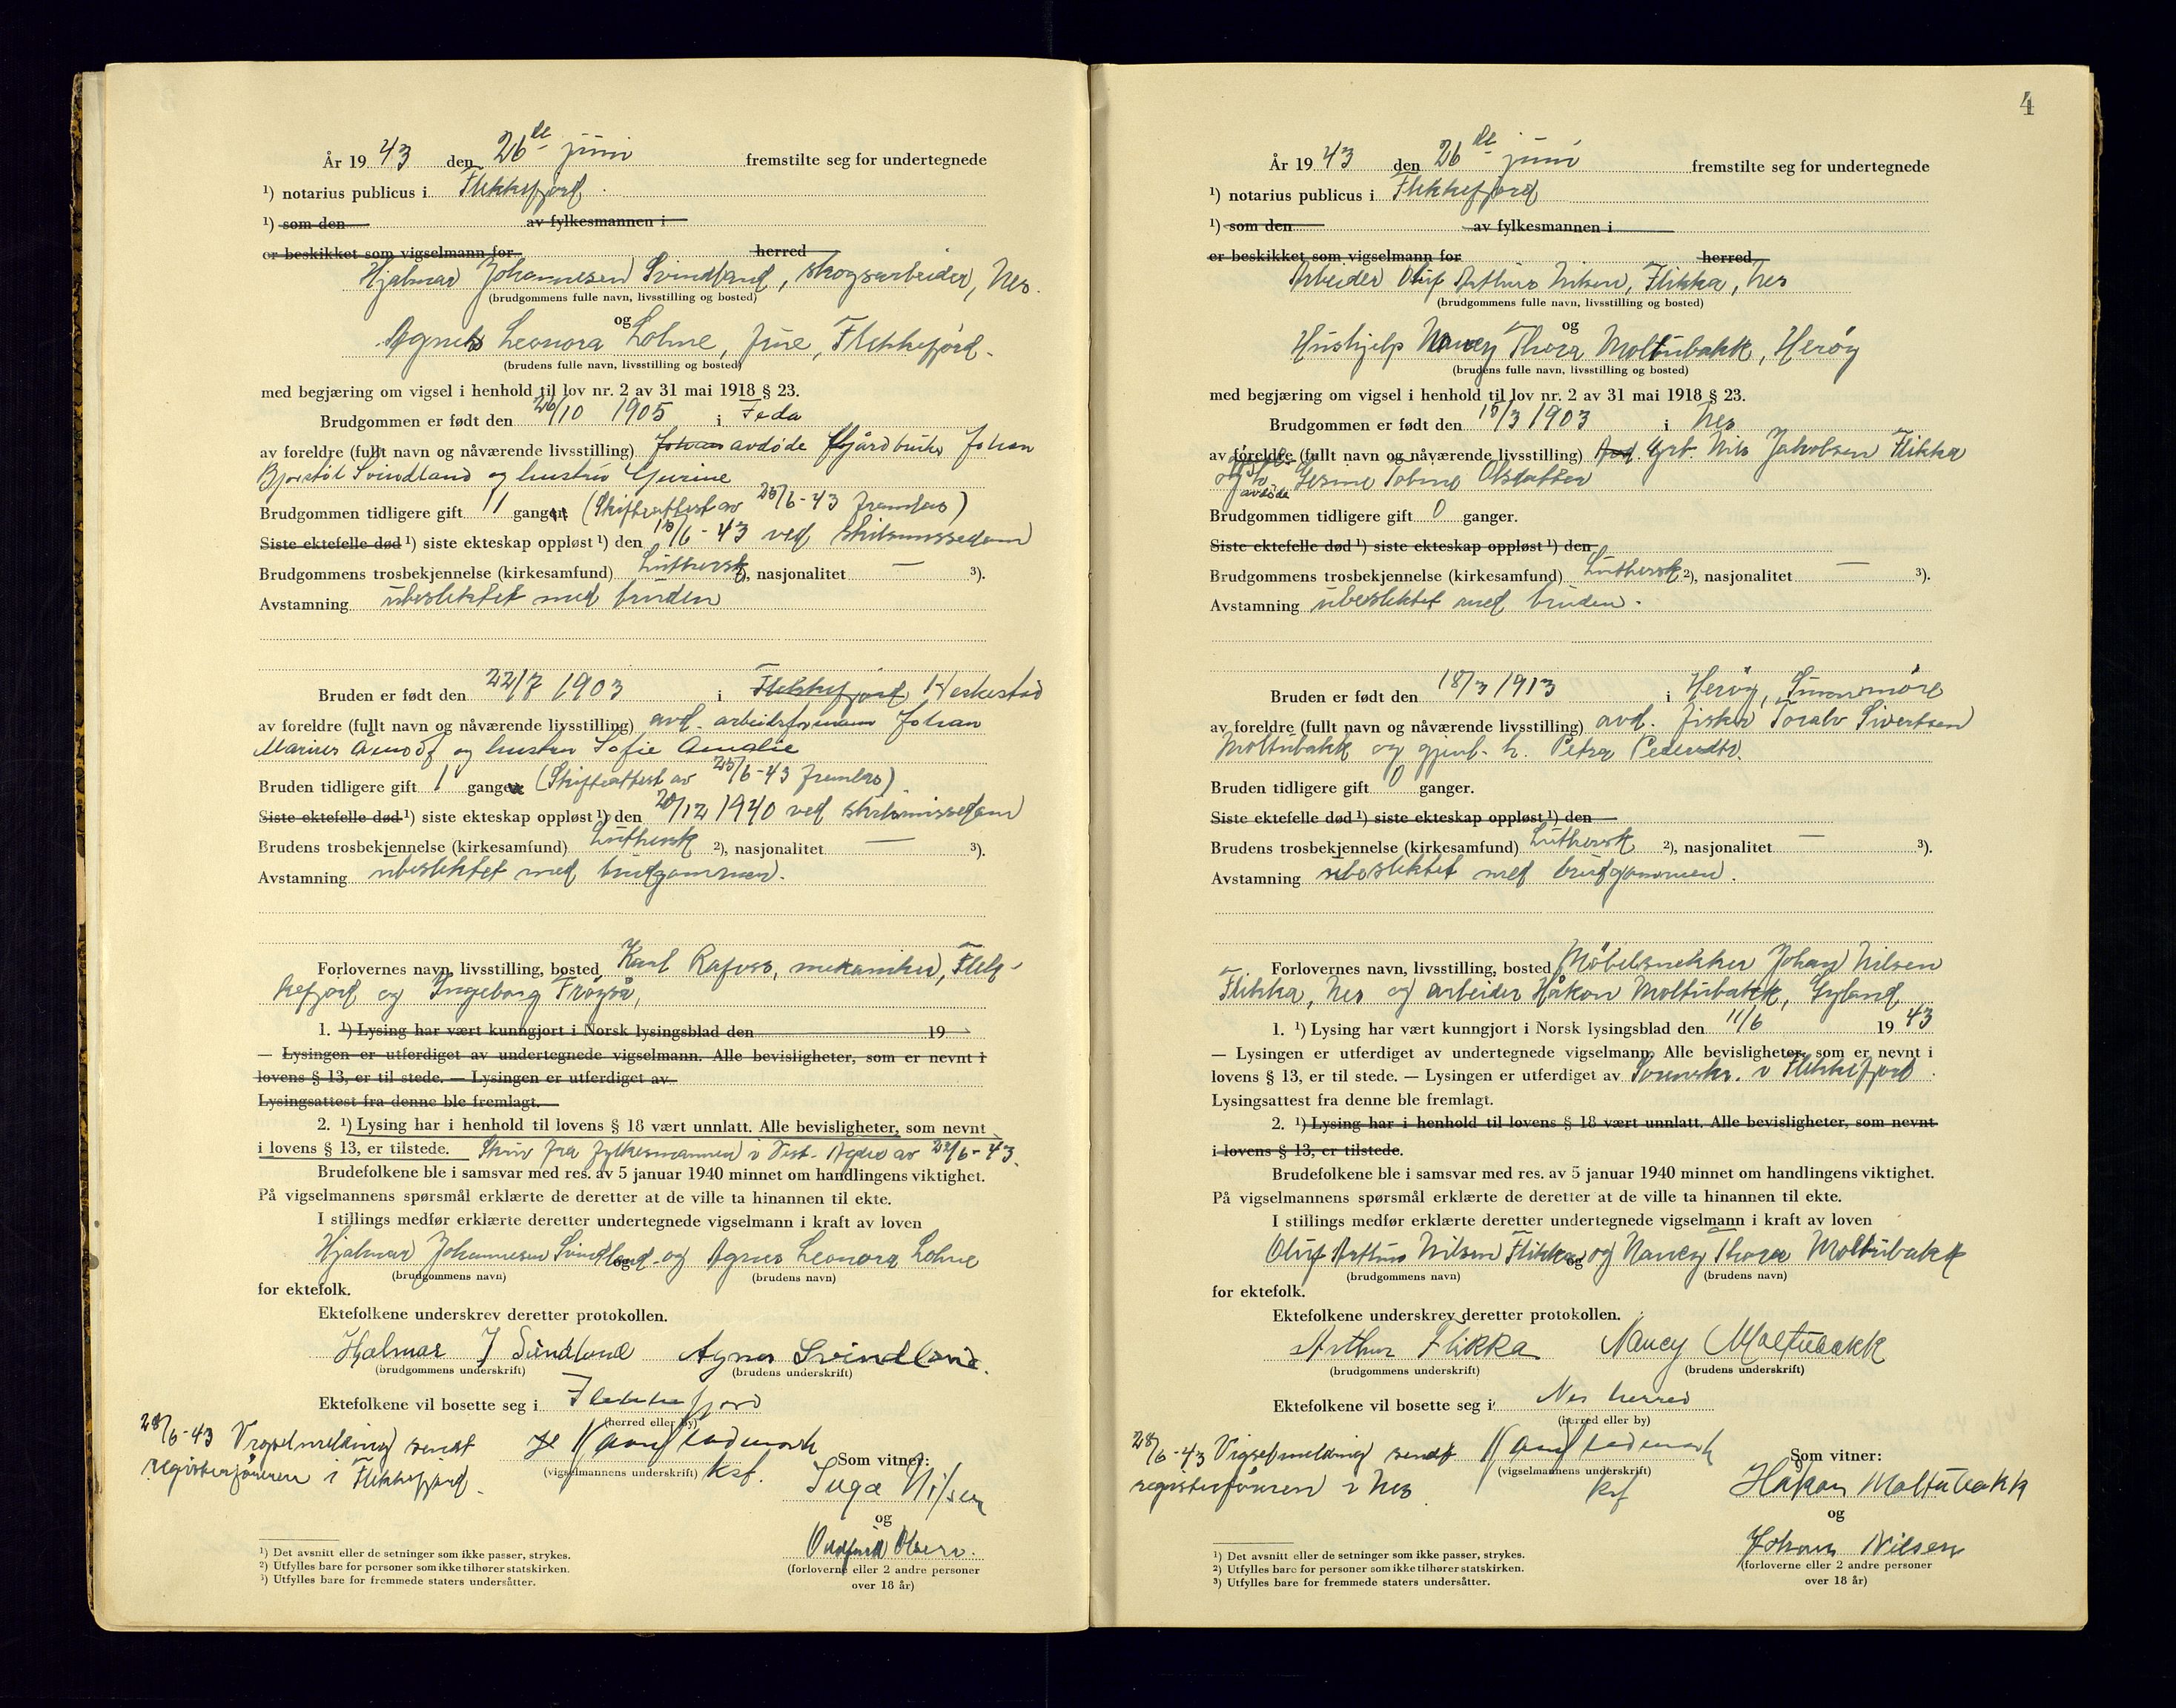 År 1943 den 26de juni fremstilte seg for undertegnede
¹) notarius publicus i Flekkefjord.
¹) som den av fylkesmannen i
er beskikket som vigselmann for herred
Hjalmar Johannesen Svindland, skogsarbeider, Nes.
(brudgommens fulle navn, livsstilling og bosted)
og
Agnes Leonora Lohne, frue, Flekkefjord.
(brudens fulle navn, livsstilling og bosted)
med begjæring om vigsel i henhold til lov nr. 2 av 31 mai 1918 § 23.
Brudgommen er født den 26/10 1905 i Feda
av foreldre (fullt navn og nåværende livsstilling) Johan avdøde gårdbruker Johan
Svindland og hustru Gurine
Brudgommen tidligere gift 1 ganger (Skifteattest av 25/6-43 fremlas)
Siste ektefelle død ¹) siste ekteskap oppløst ¹) den 18/6-43 ved skilsmissedom
Brudgommens trosbekjennelse (kirkesamfund) Luthersk ²), nasjonalitet — ³).
Avstamning ubeslektet med bruden
Bruden er født den 22/7 1903 i Flekkefjord Heskestad
av foreldre (fullt navn og nåværende livsstilling) avd. arbeidsformann Johan
Marius Åmodt og hustru Sofie Amalie
Bruden tidligere gift 1 ganger (Skifteattest av 25/6-43 fremlas)
Siste ektefelle død ¹) siste ekteskap oppløst ¹) den 20/12 1940 ved skilsmissedom
Brudens trosbekjennelse (kirkesamfund) Luthersk ²), nasjonalitet — ³).
Avstamning ubeslektet med brudgommen.
Forlovernes navn, livsstilling, bosted Karl Rafoss, mekaniker, Flek-
kefjord og Ingeborg Frøyså,
1. ¹) Lysing har vært kunngjort i Norsk lysingsblad den 19
— Lysingen er utferdiget av undertegnede vigselmann. Alle bevisligheter, som er nevnt i
lovens § 13, er til stede. — Lysingen er utferdiget av
Lysingsattest fra denne ble fremlagt.
2. ¹) Lysing har i henhold til lovens § 18 vært unnlatt. Alle bevisligheter, som nevnt
i lovens § 13, er tilstede. Skriv fra fylkesmannen i Vest-Agder av 24/6-43.
Brudefolkene ble i samsvar med res. av 5 januar 1940 minnet om handlingens viktighet.
På vigselmannens spørsmål erklærte de deretter at de ville ta hinannen til ekte.
I stillings medfør erklærte deretter undertegnede vigselmann i kraft av loven
Hjalmar Johannesen Svindland og og Agnes Leonora Lohne
(brudgommens navn) (brudens navn)
for ektefolk.
Ektefolkene underskrev deretter protokollen.
Hjalmar J Svindland Agnes Svindland.
(brudgommens underskrift) (brudens underskrift)
Ektefolkene vil bosette seg i Flekkefjord
(herred eller by)
28/6-43 Vigselmelding sendt
registerføreren i Flekkefjord.
(vigselmannens underskrift) ksf.
Som vitner:
Inga Nilsen
og
Olsen.
(forloverne eller 2 andre personer
over 18 år)
¹) Det avsnitt eller de setninger som ikke passer, strykes.
²) Utfylles bare for personer som ikke tilhører statskirken.
³) Utfylles bare for fremmede staters undersåtter.
4
År 1943 den 26de juni fremstilte seg for undertegnede
¹) notarius publicus i Flekkefjord
¹) som den av fylkesmannen i
er beskikket som vigselmann for herred
Arbeider Oluf Arthur Nilsen, Flikka, Nes
(brudgommens fulle navn, livsstilling og bosted)
og
Hushjelp Nancy Thora Moltubakk, Herøy
(brudens fulle navn, livsstilling og bosted)
med begjæring om vigsel i henhold til lov nr. 2 av 31 mai 1918 § 23.
Brudgommen er født den 15/3 1903 i Nes
av foreldre (fullt navn og nåværende livsstilling) Avd. Grb. Nils Jakobsen Flikka
og h. avdøde Gesine Tobine Olsdatter
Brudgommen tidligere gift 0 ganger.
Siste ektefelle død ¹) siste ekteskap oppløst ¹) den
Brudgommens trosbekjennelse (kirkesamfund) Luthersk ²), nasjonalitet — ³).
Avstamning ubeslektet med bruden.
Bruden er født den 18/3 1913 i Herøy, Sunnmøre
av foreldre (fullt navn og nåværende livsstilling) avd. fisker Toralv Sivertsen
Moltubakk og gjenl. h. Petra Pedersdtr.
Bruden tidligere gift 0 ganger.
Siste ektefelle død ¹) siste ekteskap oppløst ¹) den
Brudens trosbekjennelse (kirkesamfund) Luthersk ²), nasjonalitet — ³).
Avstamning ubeslektet med brudgommen.
Forlovernes navn, livsstilling, bosted Møbelsnekker Johan Nilsen
Flikka, Nes og arbeider Håkon Moltubakk, Gyland
1. ¹) Lysing har vært kunngjort i Norsk lysingsblad den 11/6 1943
— Lysingen er utferdiget av undertegnede vigselmann. Alle bevisligheter, som er nevnt i
lovens § 13, er til stede. — Lysingen er utferdiget av Sorenskr. i Flekkefjord.
Lysingsattest fra denne ble fremlagt.
2. ¹) Lysing har i henhold til lovens § 18 vært unnlatt. Alle bevisligheter, som nevnt
i lovens § 13, er tilstede.
Brudefolkene ble i samsvar med res. av 5 januar 1940 minnet om handlingens viktighet.
På vigselmannens spørsmål erklærte de deretter at de ville ta hinannen til ekte.
I stillings medfør erklærte deretter undertegnede vigselmann i kraft av loven
Oluf Arthur Nilsen Flikka og og Nancy Thora Moltubakk
(brudgommens navn) (brudens navn)
for ektefolk.
Ektefolkene underskrev deretter protokollen.
Arthur Flikka Nancy Moltubakk
(brudgommens underskrift) (brudens underskrift)
Ektefolkene vil bosette seg i Nes herred
(herred eller by)
28/6-43 Vigselmelding sendt
registerføreren i Nes
(vigselmannens underskrift)
ksf
Som vitner:
Håkon Moltubakk
og
Johan Nilsen
(forloverne eller 2 andre personer
over 18 år)
¹) Det avsnitt eller de setninger som ikke passer, strykes.
²) Utfylles bare for personer som ikke tilhører statskirken.
³) Utfylles bare for fremmede staters undersåtter.